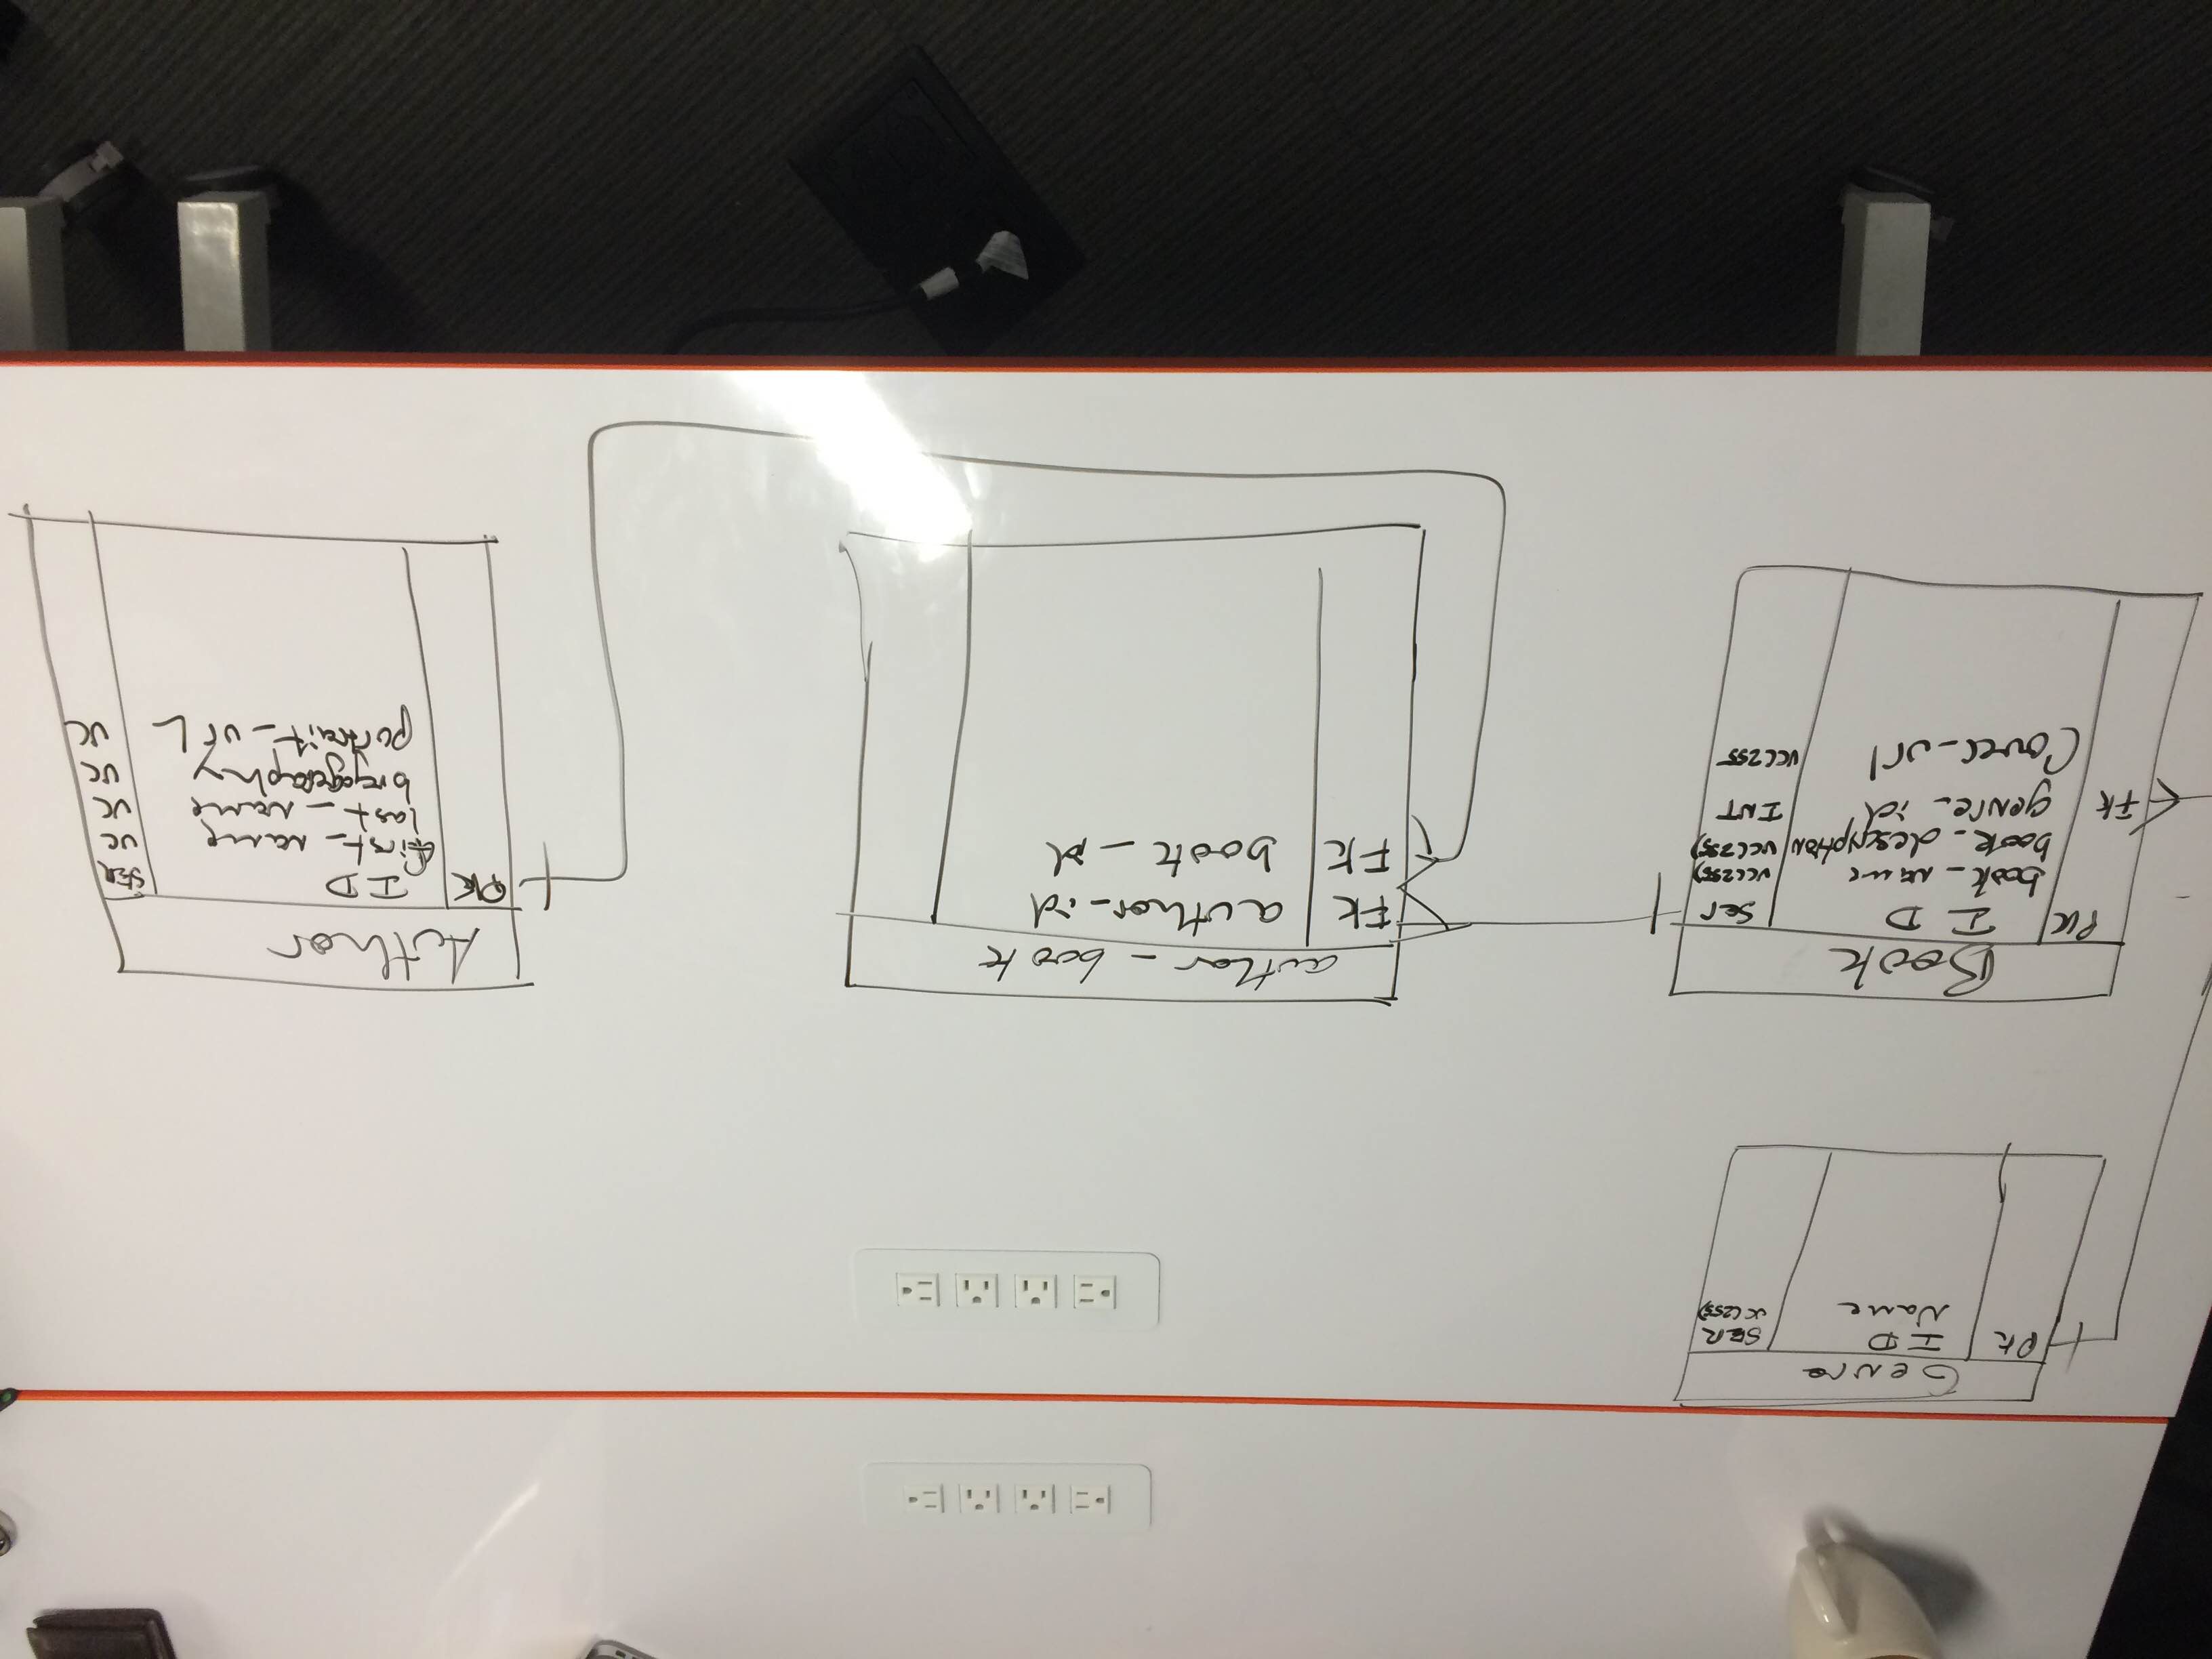 Genre
PK ID SER
Name VC(255)
Book
PK ID Ser
book_name VC(255)
book_description VC(255)
FK genre_id INT
Cover_url VC(255
author_book
FK author_id
FK book_id
Author
PK ID SER
first_name VC
last_name VC
VC
portrait_urL VC